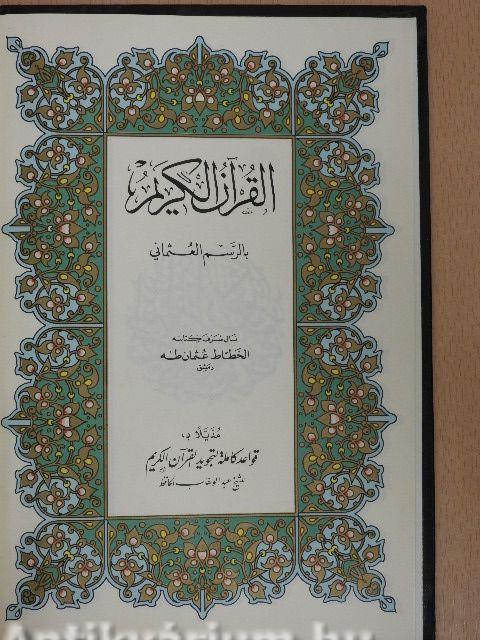 القُرآنُ الكَرِيمُ
بالرَّسْمِ العُثماني
نَالَ شَرَفَ كِتَابَتِهِ
الخَطَّاط عُثمان طٰه
دمشق
مُذَيَّلًا بـ
قواعد كاملة لتجويد القرآن الكريم
للشيخ عبد الوهاب الحافظ
Antikvárium.hu